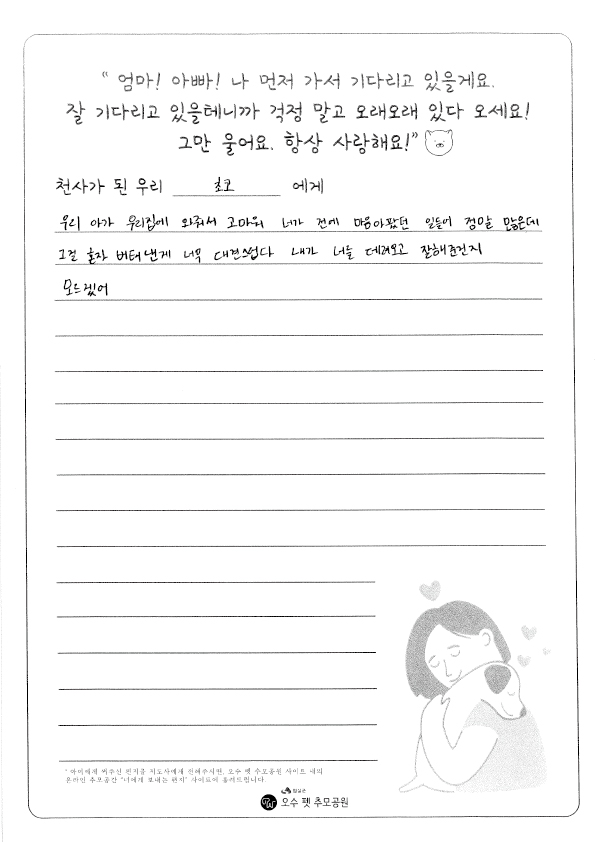 “ 엄마! 아빠! 나 먼저 가서 기다리고 있을게요.
잘 기다리고 있을테니까 걱정 말고 오래오래 있다 오세요!
그만 울어요. 항상 사랑해요!”
천사가 된 우리 초코 에게
우리 아가 우리집에 와줘서 고마워 네가 전에 마음아팠던 일들이 정말 많은데
그걸 혼자 버텨낸게 너무 대견스럽다 내가 너를 데려오고 잘해준건지
모르겠어
* 아이에게 써주신 편지를 지도사에게 전해주시면, 오수 펫 추모공원 사이트 내의
온라인 추모공간 "너에게 보내는 편지" 사이트에 올려드립니다.
임실군
오수 펫 추모공원